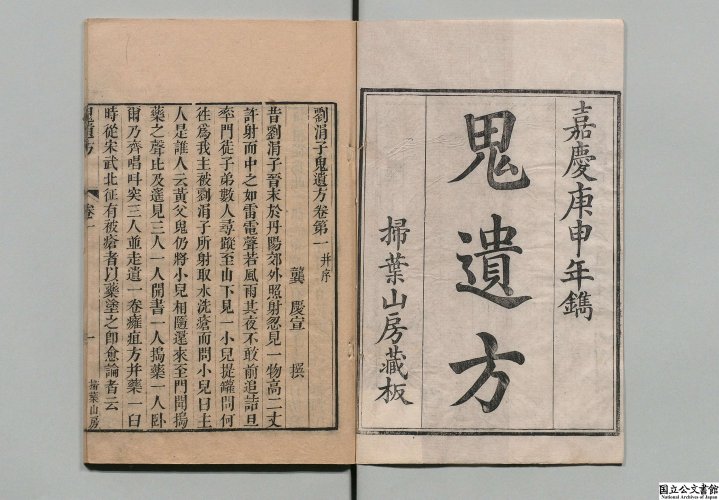 嘉慶庚申年鐫
鬼遺方
掃葉山房藏板
劉涓子鬼遺方卷第一并序
龔慶宣撰
昔劉涓子晉末於丹陽郊外照射忽見一物高二丈
許射而中之如雷電聲若風雨其夜不敢前追詰旦
率門徒子弟數人尋蹤至山下見一小兒提罐問何
往為我主被劉涓子所射取水洗瘡而問小兒曰主
人是誰人云黃父鬼仍將小兒相隨還來至門聞搗
藥之聲比及遙見三人一人開書一人搗藥一人臥
爾乃齊唱叫突三人並走遺一卷癰疽方并藥一臼
時從宋武北征有被瘡者以藥塗之即愈論者云
鬼遺方
卷一
一
掃葉山房
国立公文書館
National Archives of Japan